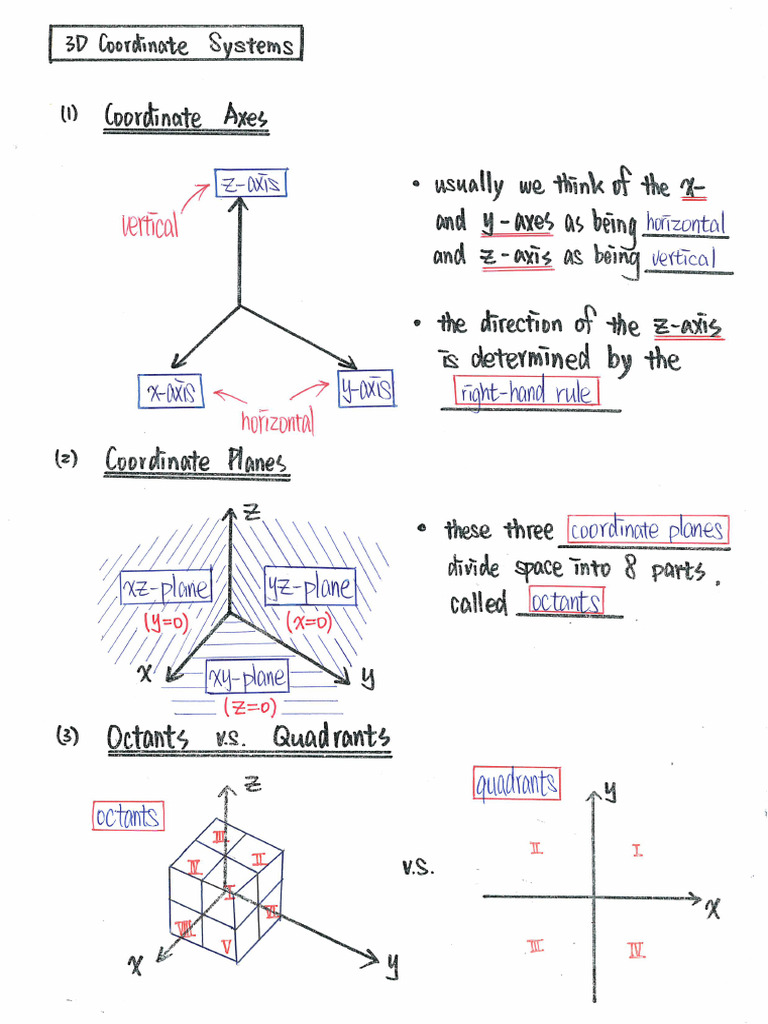 3D Coordinate Systems
(1) Coordinate Axes
z-axis
vertical
x-axis
y-axis
horizontal
• usually we think of the x-
and y-axes as being horizontal
and z-axis as being vertical
• the direction of the z-axis
is determined by the
right-hand rule
(2) Coordinate Planes
z
xz-plane
yz-plane
(y=0)
(x=0)
x
xy-plane
y
(z=0)
• these three coordinate planes
divide space into 8 parts,
called octants
(3) Octants v.s. Quadrants
octants
z
III
IV
II
I
VIII
VI
V
x
y
v.s.
quadrants
y
II
I
x
III
IV